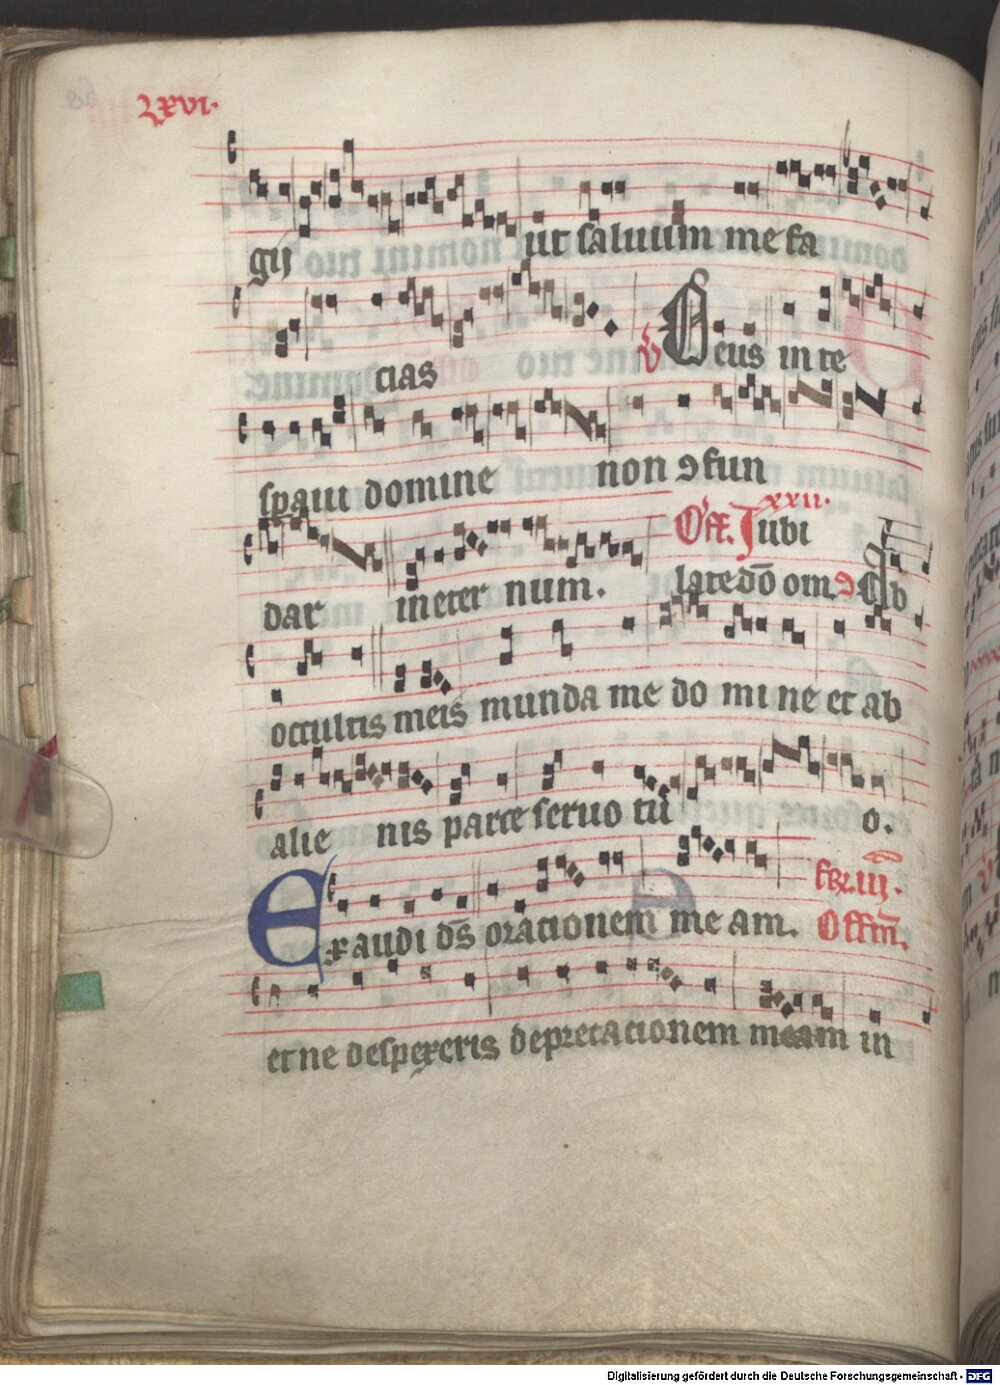 lxvi.
gij ut saluum me fa
cias v Deus in te
spaui domine non ꝯfun
dar in eter num. Off. Jubi xxii.
late dō om. ꝯ Ab
occultis meis munda me do mi ne et ab
alie nis parce seruo tu o.
Exaudi ds̄ orationem me am. fer. iij.
Offm̄.
et ne despexeris deprecationem meam in
Digitalisierung gefördert durch die Deutsche Forschungsgemeinschaft - DFG